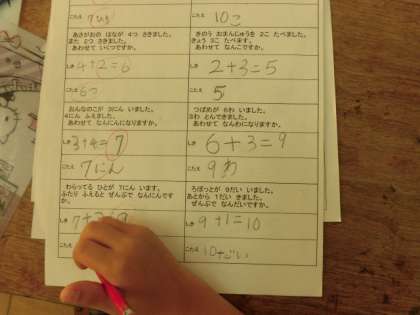 こたえ 7ひき
こたえ 10こ
あさがおの はなが 4つ さきました。
また 2つ さきました。
あわせて いくつですか。
きのう おまんじゅうを 2こ たべました。
きょう 3こ たべます。
あわせて なんこですか。
しき 4+2=6
しき 2+3=5
こたえ 6つ
こたえ 5
おんなのこが 3にん いました。
4にん ふえました。
あわせて なんにんになりますか。
つばめが 6わ いました。
3わ とんできました。
あわせて なんわになりますか。
しき 3+4=7
しき 6+3=9
こたえ 7にん
こたえ 9わ
わらってる ひとが 7にん います。
ふたり ふえると ぜんぶで なんにんです
か。
ろぼっとが 9だい いました。
あとから 1だい きました。
ぜんぶで なんだいですか。
しき 7+2=9
しき 9+1=10
こたえ
こたえ